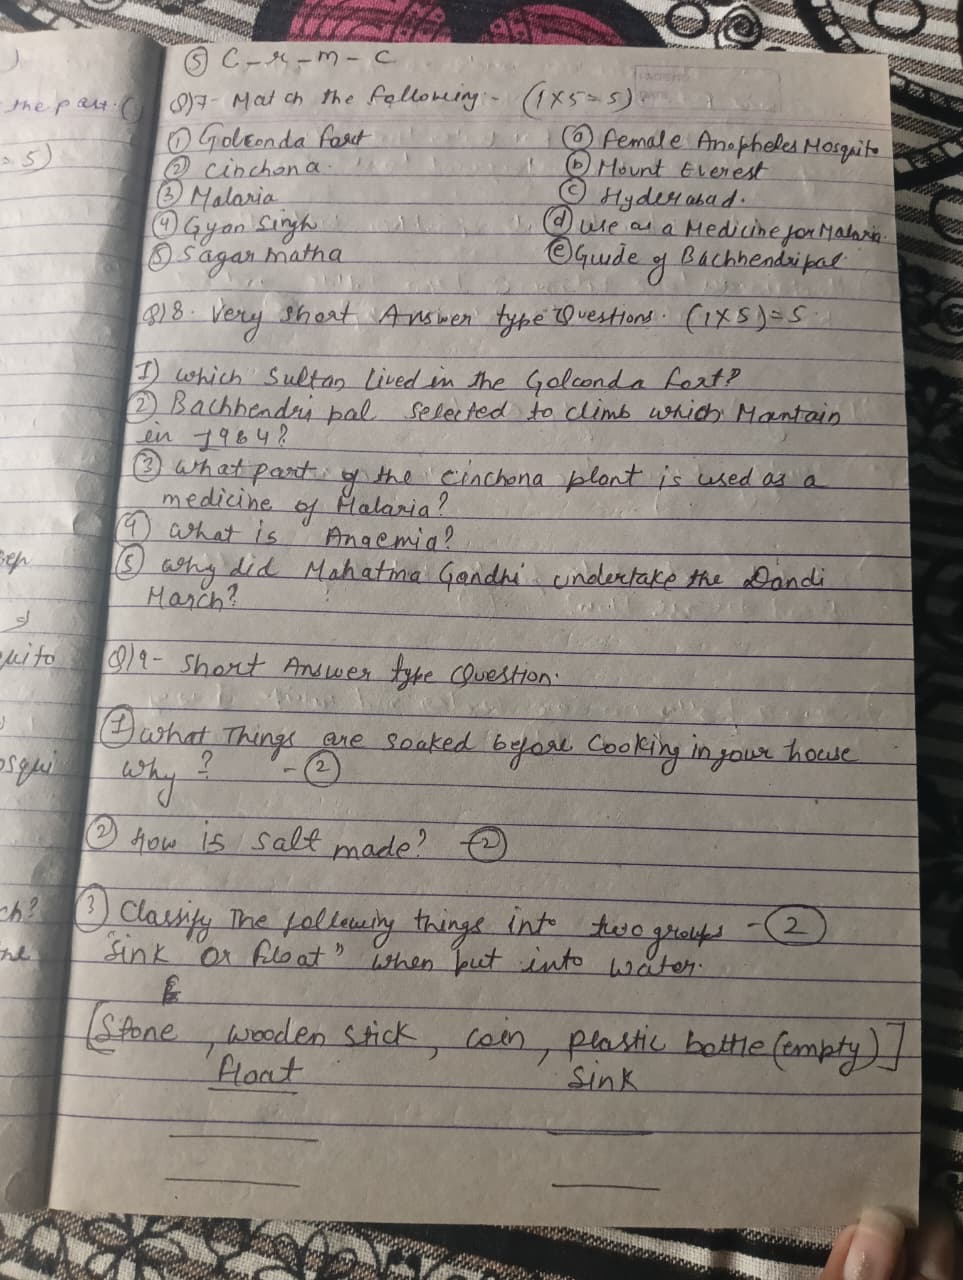 ⑤ C - r - m - C
the part. (
Q)7- Match the following - (1×5=5)
= 5)
① Golconda fort ⓐ Female Anopheles Mosquito
② Cinchona. ⓑ Mount Everest
③ Malaria ⓒ Hyderabad.
④ Gyan Singh ⓓ use as a Medicine for Malaria.
⑤ Sagar matha ⓔ Guide of Bachhendripal
Q)8. Very short Answer type Questions. (1×5)=5.
1) which Sultan lived in the Golconda fort?
② Bachhendri pal selected to climb which Mantain
in 1984?
③ what part of the cinchona plant is used as a
medicine of Malaria?
④ what is Anaemia?
⑤ why did Mahatma Gandhi undertake the Dandi
March?
quito
Q)9- Short Answer type Question.
① What Things are soaked before Cooking in your house
osqui
why? - ②
② How is salt made? - ②
ch?
③ Classify The following things into two groups - ②
"Sink or float" when but into water.
[Stone, wooden stick, coin, plastic bottle (empty)]
float Sink